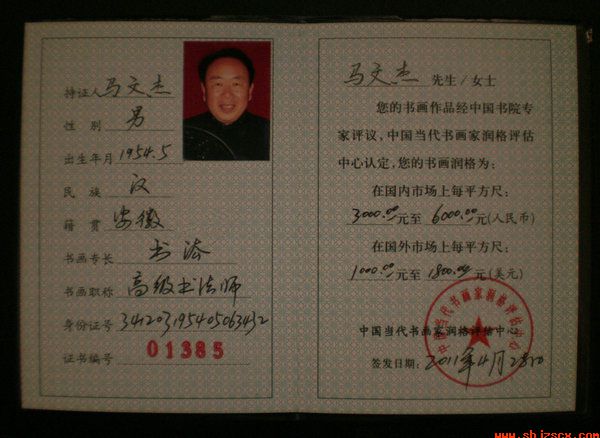 持证人 马文杰
性 别 男
出生年月 1954.5
民 族 汉
籍 贯 安徽
书画专长 书法
书画职称 高级书法师
身份证号 341203195405063432
证书编号 01385
马文杰 先生/女士
您的书画作品经中国书院专
家评议,中国当代书画家润格评估
中心认定,您的书画润格为:
在国内市场上每平方尺:
3000.00元至 6000.00元(人民币)
在国外市场上每平方尺:
1000.00元至 1800.00元(美元)
中国当代书画家润格评估中心
中国当代书画家润格评估中心
签发日期: 2011年4月28日
www.shjzscx.com